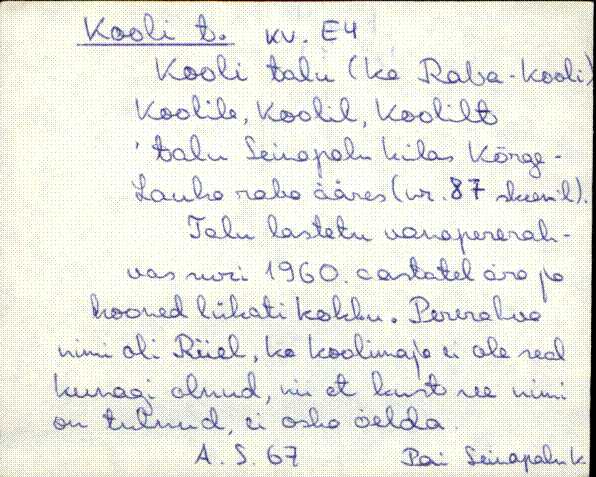 Kooli t. KV. E4
Kooli talu (ka Raba-Kooli)
Koolile, Koolil, Koolilt
talu Seinapalu külas Kõrge-
Lauka raba ääres (nr. 87 skeemil).
Talu lastetu vanapererah-
vas suri 1960. aastatel ära ja
hooned lükati kokku. Pererahva
nimi oli Rüel, ka koolimaja ei ole seal
kunagi olnud, nii et kust see nimi
on tulnud, ei oska öelda.
A. S. 67 Pai Seinapalu k.